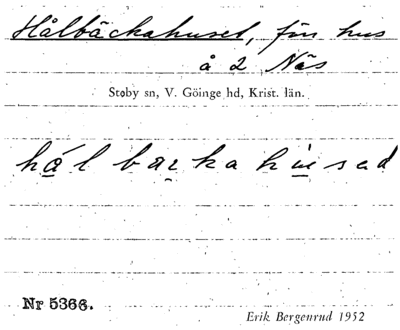 Hålbäckahuset, förr hus
å 2 Näs
Stoby sn, V. Göinge hd, Krist. län.
Nr 5366.
Erik Bergenrud 1952